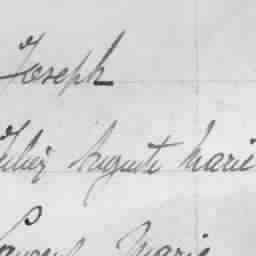 Joseph
Félix Auguste Marie
Marie